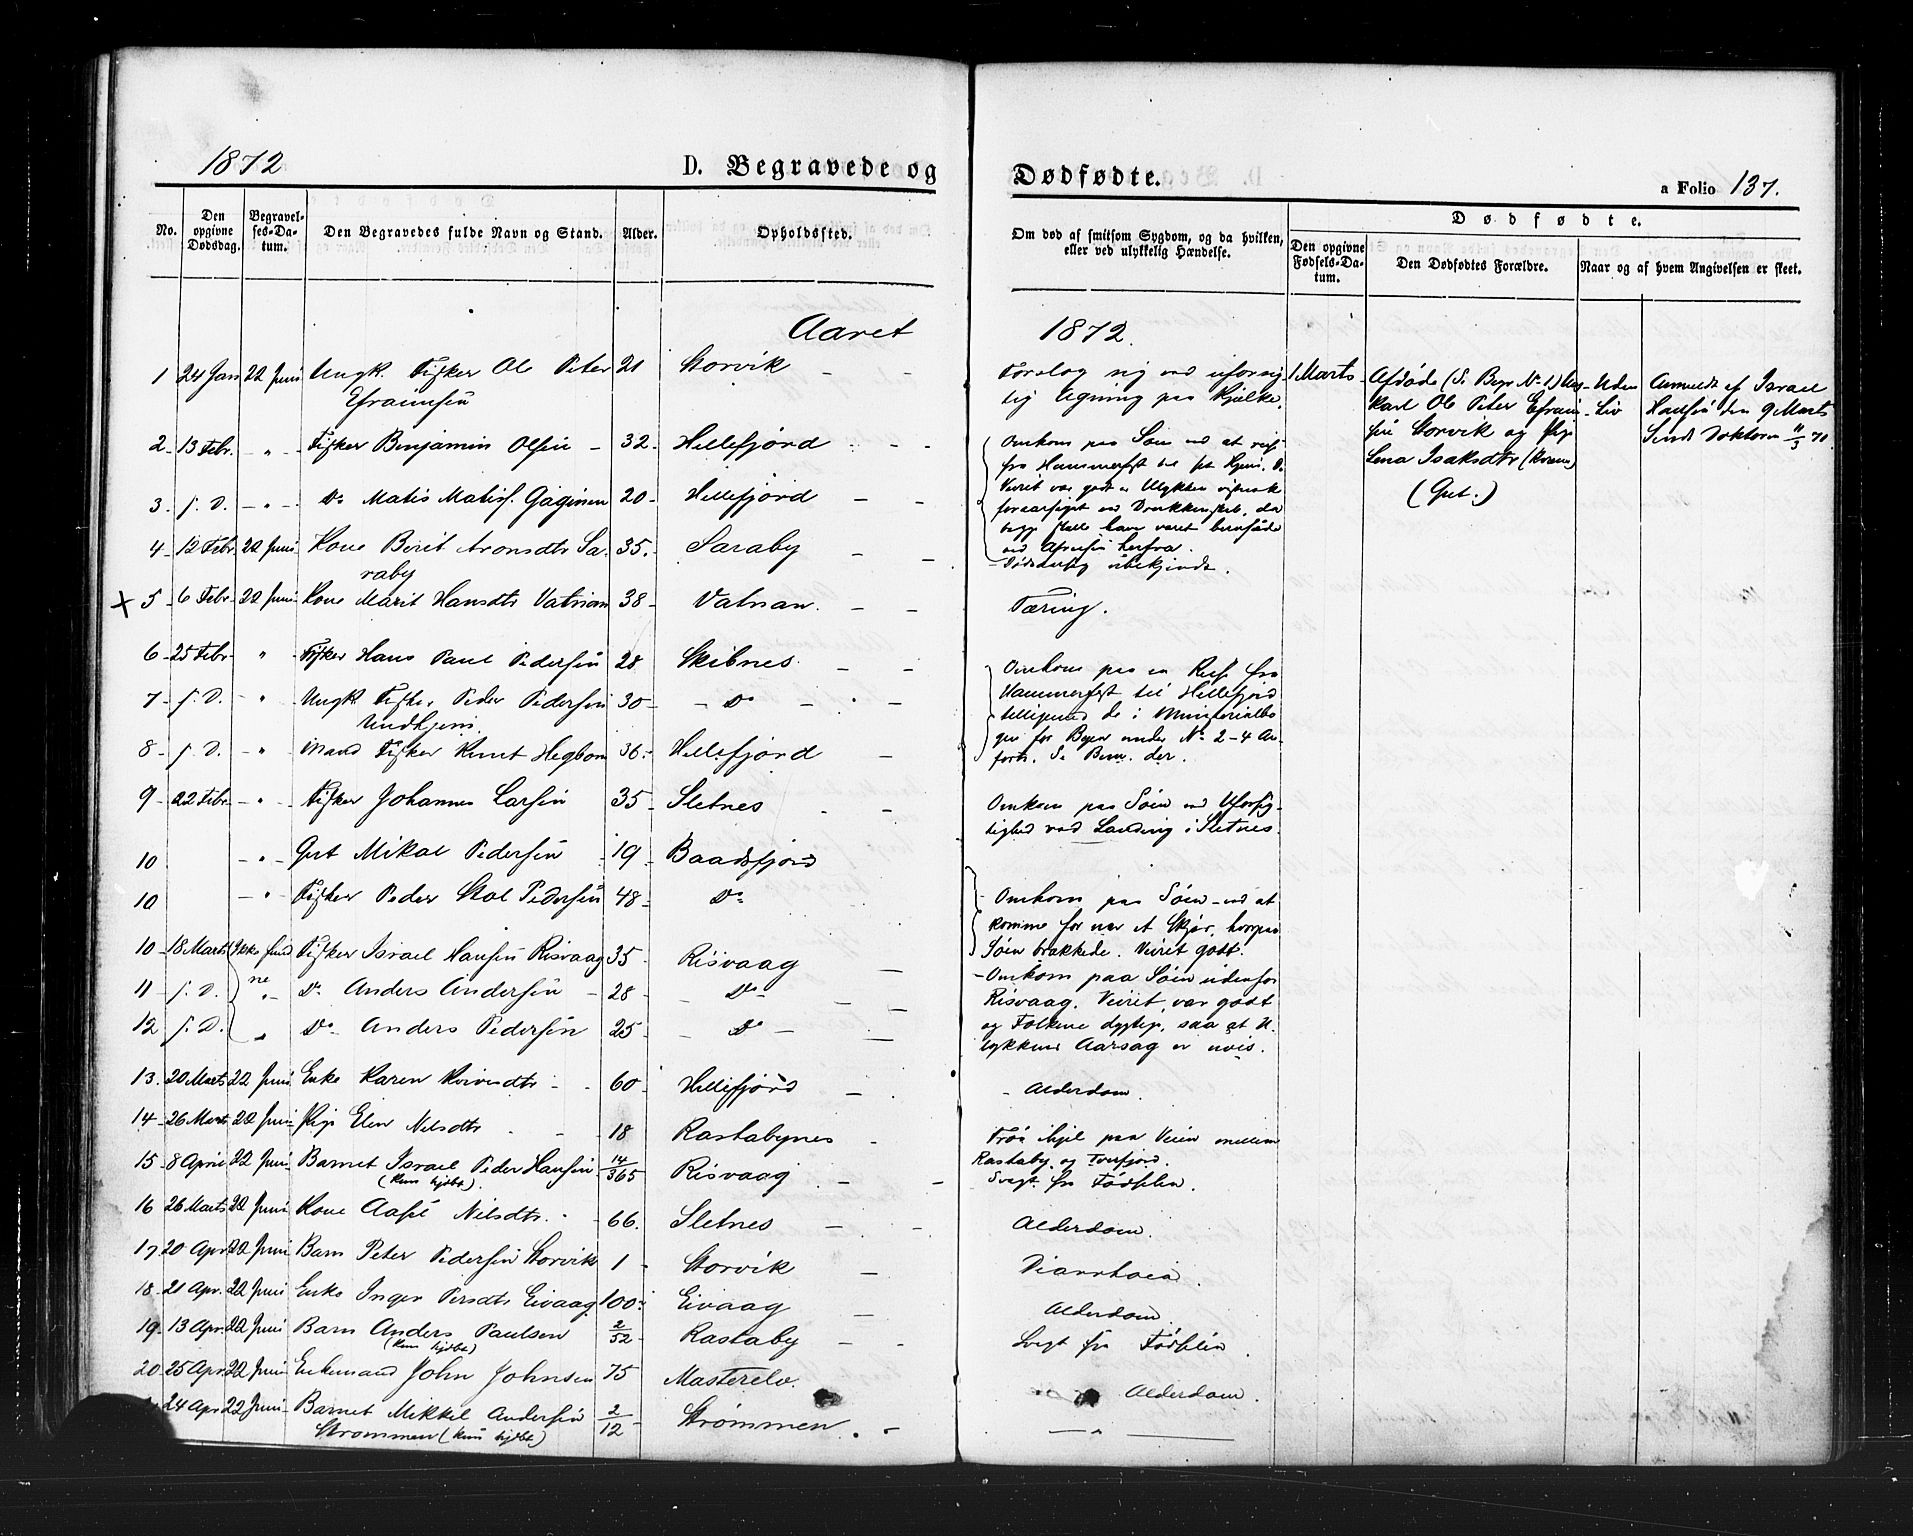 1872
D. Begravede og
Dødfødte.
a Folio 137.
No.
Den opgivne Dødsdag.
Begravelses-Datum.
Den Begravedes fulde Navn og Stand.
Alder.
Opholdssted.
Om død af smitsom Sygdom, og da hvilken, eller ved ulykkelig Hændelse.
Dødfødte.
Den opgivne Fødsels-Datum.
Den Dødfødtes Forældre.
Naar og af hvem Angivelsen er skeet.
Aaret 1872.
1 24 Jan 22 Juni Ungk. Fisker Ole Peter 21 Storvik - -
Efraimsen
Forslog sig ved uforsig
tig Agning paa Kjelke.
1 Marts
Afdøde (S. Begr No 1) Ung
karl Ole Peter Efraim
sen Storvik og Pige
Lena Isaksdtr (Kvæn)
(Gift.)
Uden
Liv
Anmeldt af Israel
Hansen den 9 Marts
Sendt Doktoren 11/3 72
2 13 Febr. - " - Fisker Benjamin Olsen - 32 - Hellefjord - -
3 s. D. - " - Do Matis Matiss. Gaginen 20 - Hellefjord - -
Omkom paa Søen ved at reise
fra Hammerfest til sit Hjem.
Veiret var godt
foraarsaget ved Drukkenskab, da
begge skulle have været berusede
ved Afreisen herfra.
4 - 12 Febr 22 Juni Kone Berit Aronsdtr Sa- 35. Saraby - -
raby
Dødsaarsag ubekjendt.
x 5 - 6 Febr - 22 Juni Kone Marit Hansdtr Vatnan 38 - Vatnan. - -
Tæring.
6 - 25 Febr - " Fisker Hans Paul Pedersen 28 Skibnes - -
7 - s. D. - " Ungk Fisker Peder Pedersen 30 - - Do - -
8 - s. D. - " Mand Fisker Knut Hegbom 36 - Hellefjord -
Omkom paa en Reise fra
Hammerfest til Hellefjord
tilligemed de i Ministerialbo
gen for Byen under No 2-4 An-
førte. Se Bem. der.
9 - 22 Febr - " - Fisker Johannes Larsen 35 - Sletnes - -
Omkom paa Søen ved Uforsig-
tighed ved Landing i Sletnes.
10 - " - Gut Mikal Pedersen - 19 - Baadsfjord
10 - " - Fisker Peder Skol Pedersen 48 - Do
- Omkom paa Søen ved at
komme for nær et Skjær, hvorpaa
Søen brækkede. Veiret godt.
10 - 18 Marts (Ikke fund Fisker Israel Hansen Risvaag 35 - Risvaag -
ne
11 - s. D. " - Do Anders Andersen - 28 - - Do - -
12 s. D. " Do - Anders Pedersen 25 - - Do - -
- Omkom paa Søen udenfor
Risvaag. Veiret var godt
og Folkene dygtige, saa at U-
lykkens Aarsag er uvis.
13. 20 Marts 22 Juni Enke Karen Eivindtr - - 60 - Hellefjord -
- Alderdom.
14 - 26 Marts 22 Juni Pige Elen Nilsdtr - - 18 Rastabynes -
Frøs ihjel paa Veien mellem
Rastaby og Torefjord.
15 - 8 April 22 Juni Barnet Israel Peder Hansen 14/365 Risvaag - -
(kun hjdbt).
Svagt fra Fødselen.
16 26 Marts 22 Juni Kone Aase Nilsdtr. - 66. Sletnes - -
Alderdom.
17 20 Apr. 22 Juni Barn Peter Pedersen Storvik 1 - Storvik -
Diarrhoea.
18. 21 Apr. 22 Juni Enke Inger Persdtr Eivaag 100 - Eivaag -
Alderdom.
19 - 13 Apr. 22 Juni Barn Anders Paulsen 2/52 - Rastaby - -
(kun hjdbt)
Svagt fra Fødselen.
20 25 Apr. 22 Juni Enkemand John Johnsen 75 Masterelv.
Alderdom.
24 Apr 22 Juni - Barnet Mikkel Andersen 2/12 - Strømmen . -
Strømmen (kun hjdbt)
- " -